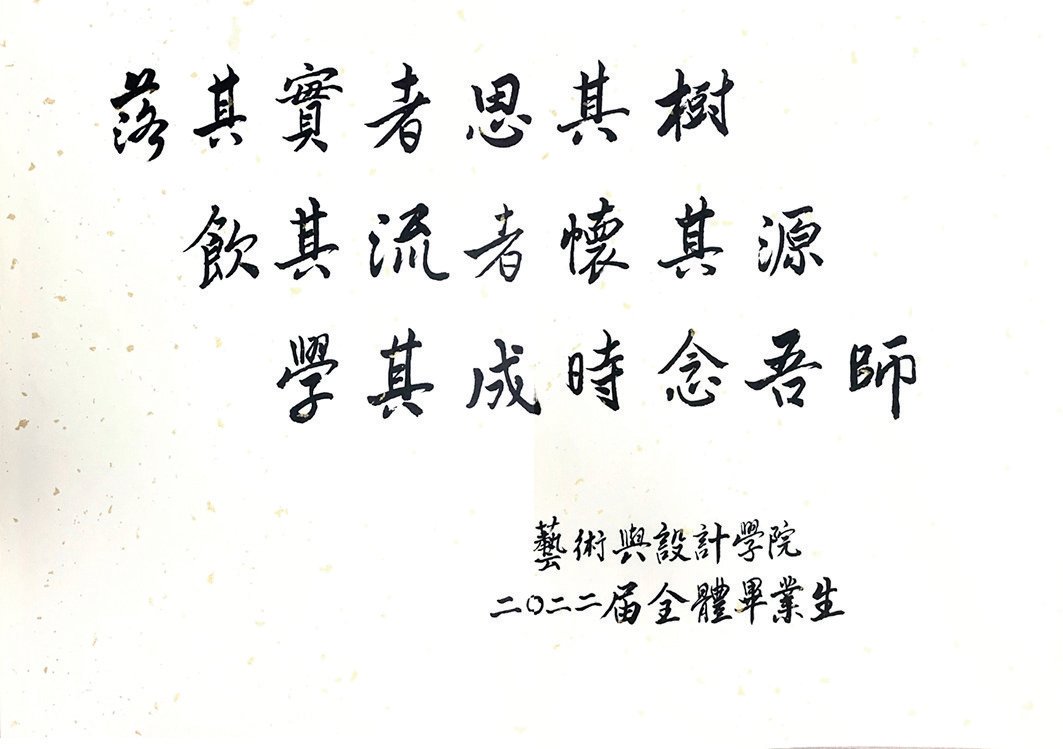 落其實者思其樹
飲其流者懷其源
學其成時念吾師
藝術與設計學院
二〇二二届全體畢業生